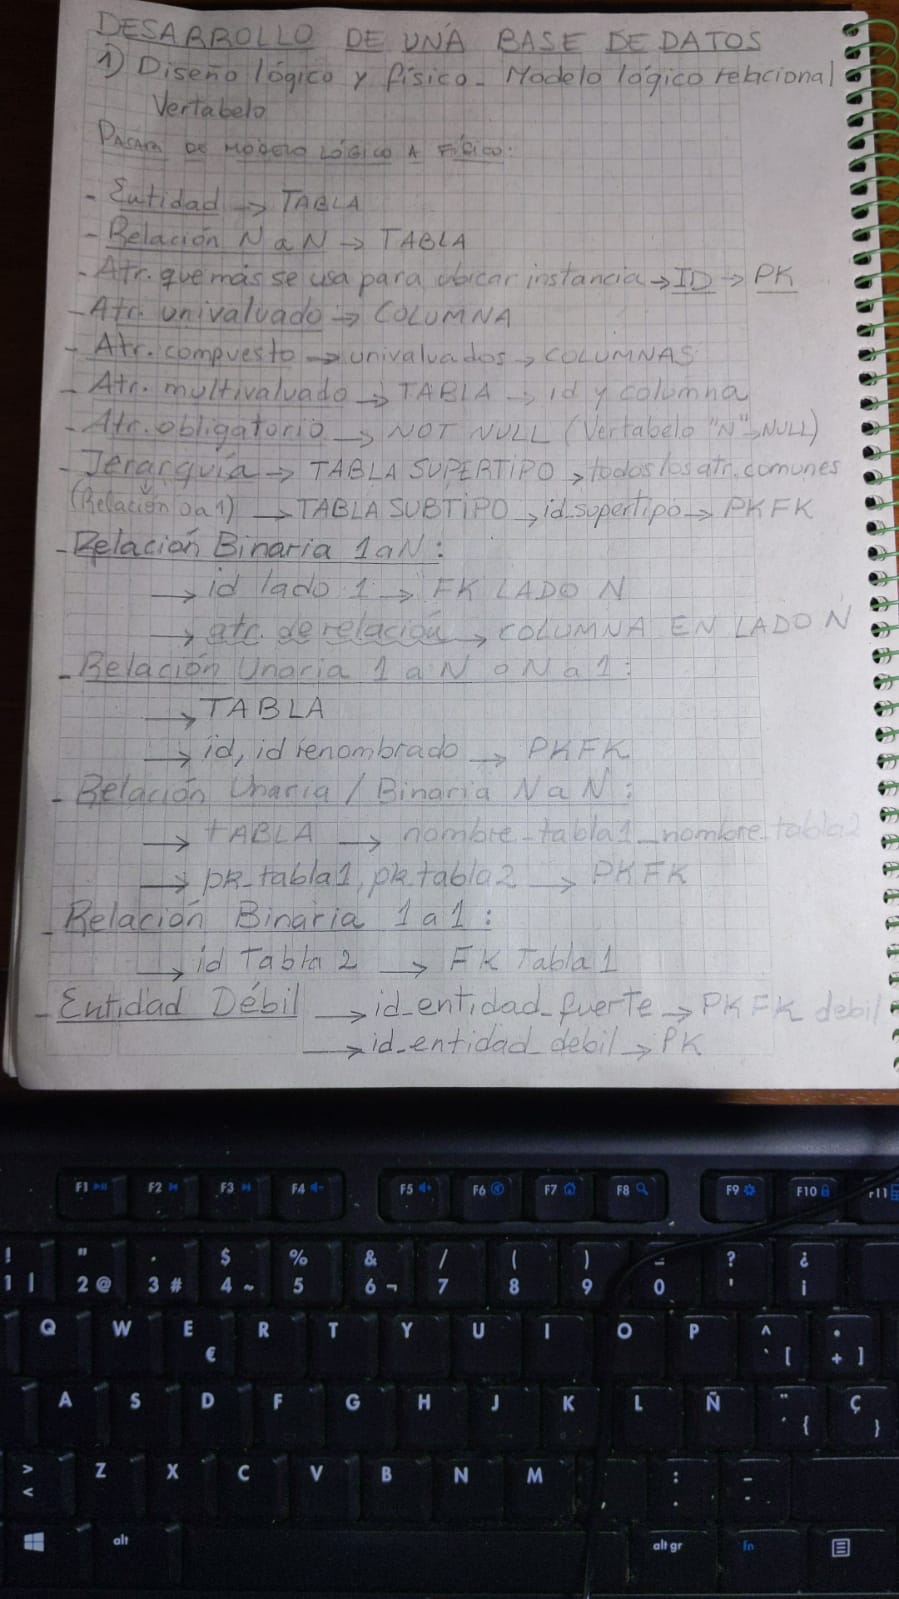 DESARROLLO DE UNA BASE DE DATOS
1) Diseño lógico y físico - Modelo lógico relacional
Vertabelo
PASAR DE MODELO LÓGICO A FÍSICO:
- Entidad → TABLA
- Relación N a N → TABLA
- Atr. que más se usa para ubicar instancia → ID → PK
- Atr. univaluado → COLUMNA
- Atr. compuesto → univaluados → COLUMNAS
- Atr. multivaluado → TABLA → id y columna
- Atr. obligatorio → NOT NULL (Vertabelo "N" → NULL)
- Jerarquía → TABLA SUPERTIPO → todos los atr. comunes
(Relación 0 a 1) → TABLA SUBTIPO → id_supertipo → PKFK
- Relación Binaria 1 a N:
→ id lado 1 → FK LADO N
→ atr. de relación → COLUMNA EN LADO N
- Relación Unaria 1 a N o N a 1:
→ TABLA
→ id, id renombrado → PKFK
- Relación Unaria / Binaria N a N:
→ TABLA → nombre_tabla1_nombre_tabla2
→ pk_tabla1, pk_tabla2 → PKFK
- Relación Binaria 1 a 1:
→ id Tabla 2 → FK Tabla 1
- Entidad Débil → id_entidad_fuerte → PKFK debil
→ id_entidad_debil → PK
F1 F2 F3 F4 F5 F6 F7 F8 F9 F10 F11
! " · $ % & / ( ) = ? ¿
1 | 2 @ 3 # 4 ~ 5 6 ¬ 7 8 9 0 ' ¡
Q W E R T Y U I O P ^ *
€ ` [ + ]
A S D F G H J K L Ñ ¨ Ç
´ { }
> Z X C V B N M : -
< , .
alt alt gr fn